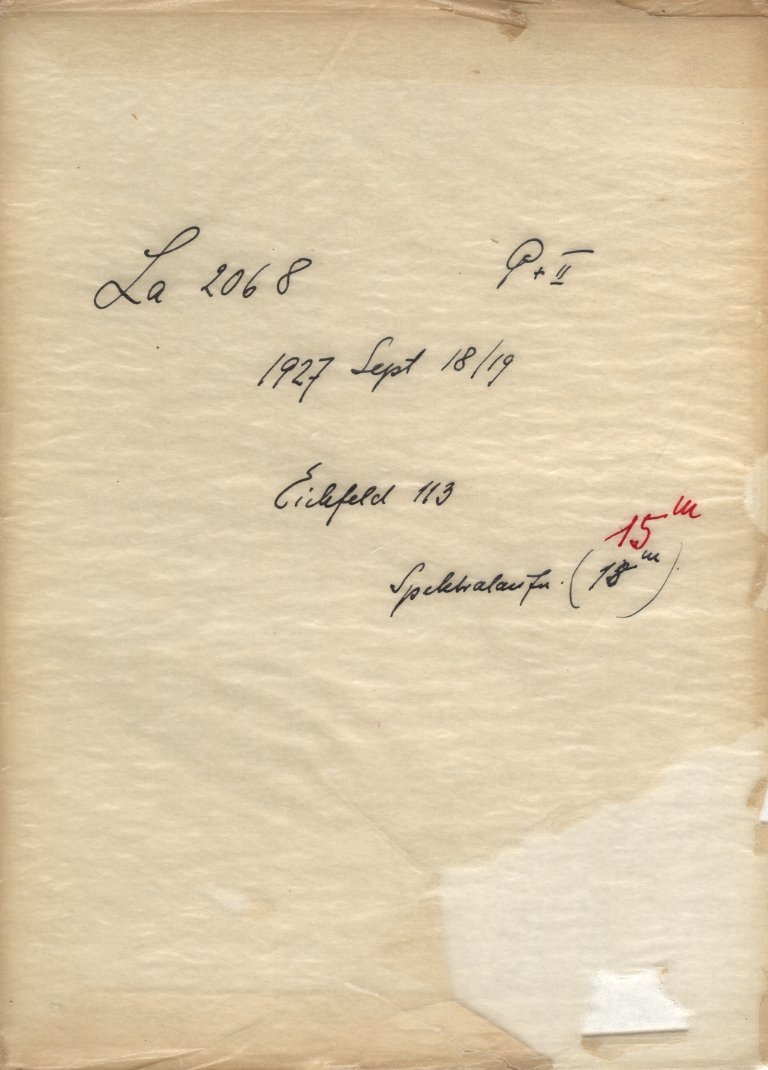 La 2068 P + II
1927 Sept 18/19
Eichfeld 113
15ᵐ
Spektralaufn. (18ᵐ)